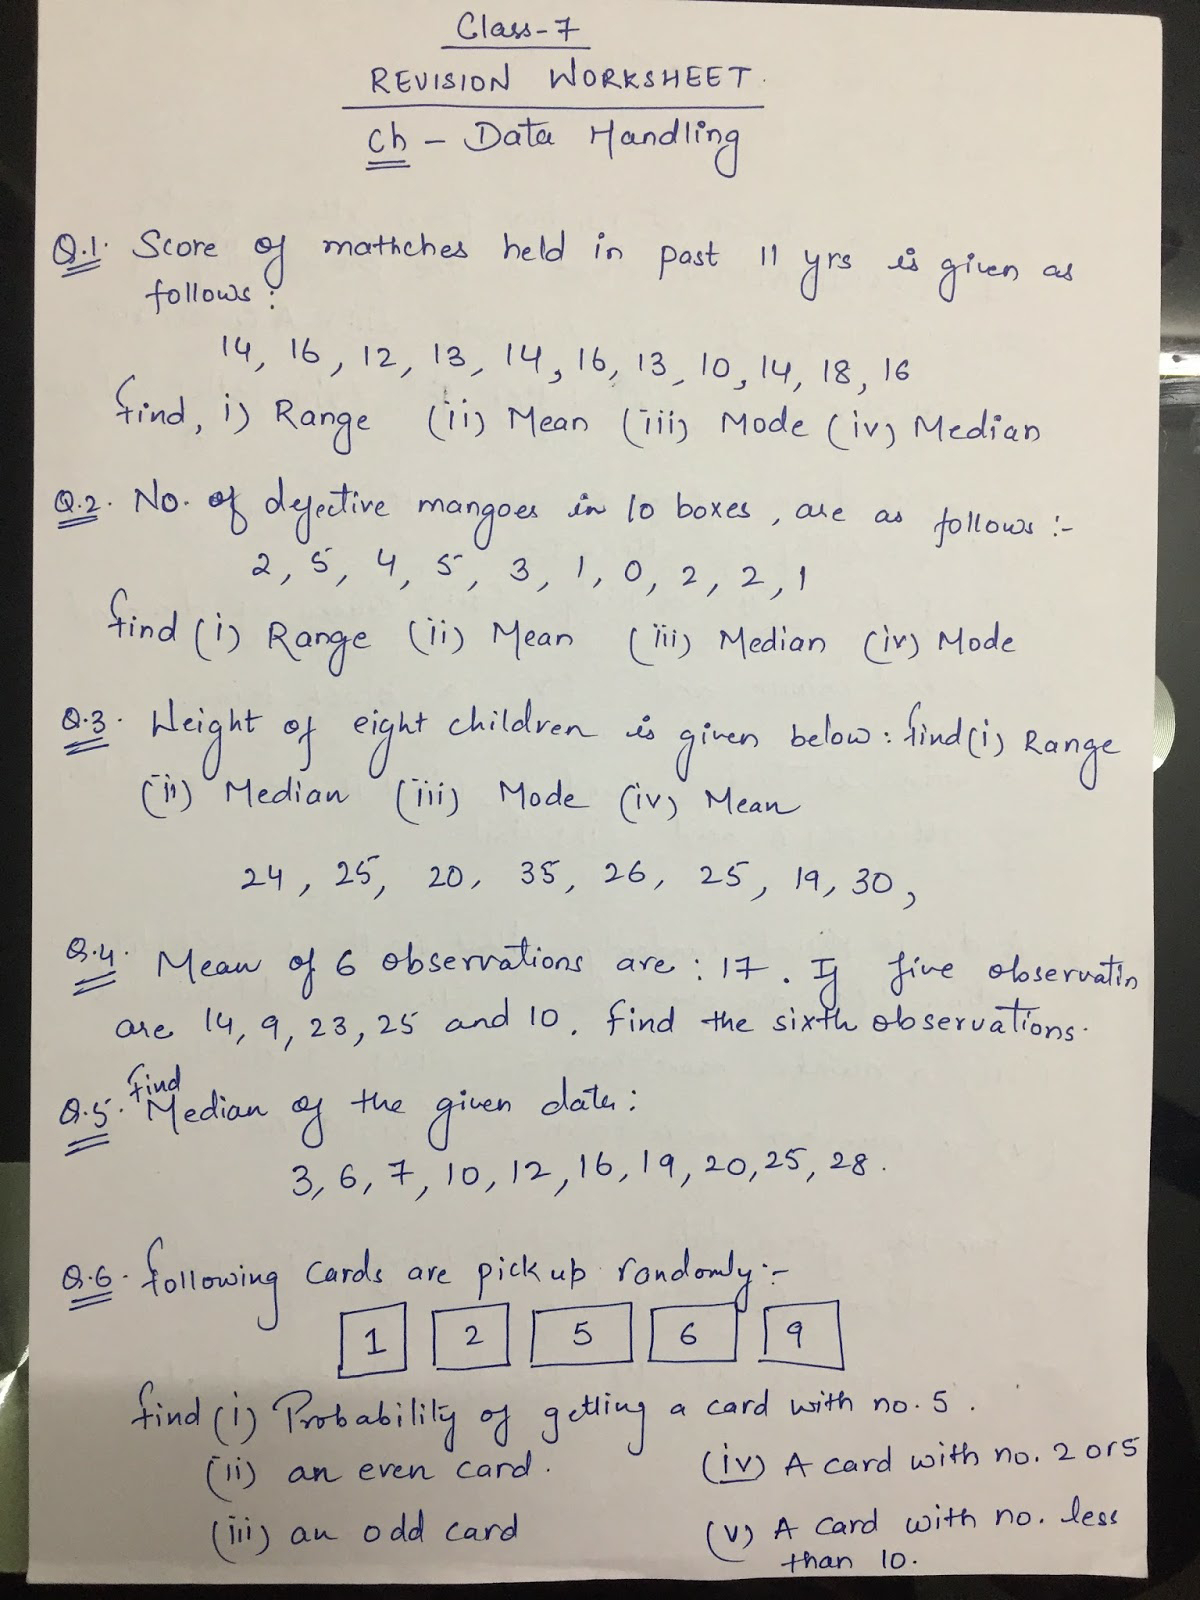 Class-7
REVISION WORKSHEET.
Ch - Data Handling
Q.1. Score of mathches held in past 11 yrs is given as
follows:
14, 16, 12, 13, 14, 16, 13, 10, 14, 18, 16
find, i) Range (ii) Mean (iii) Mode (iv) Median
Q.2. No. of defective mangoes in 10 boxes, are as follows :-
2, 5, 4, 5, 3, 1, 0, 2, 2, 1
find (i) Range (ii) Mean (iii) Median (iv) Mode
Q.3. Height of eight children is given below: find (i) Range
(ii) Median (iii) Mode (iv) Mean
24, 25, 20, 35, 26, 25, 19, 30,
Q.4. Mean of 6 observations are: 17. If five observatin
are 14, 9, 23, 25 and 10. find the sixth observations.
Q.5. find Median of the given data:
3, 6, 7, 10, 12, 16, 19, 20, 25, 28.
Q.6. following cards are pick up randomly:-
1 2 5 6 9
find (i) Probability of getting a card with no. 5.
(ii) an even card. (iv) A card with no. 2 or 5
(iii) an odd card (v) A card with no. less
than 10.